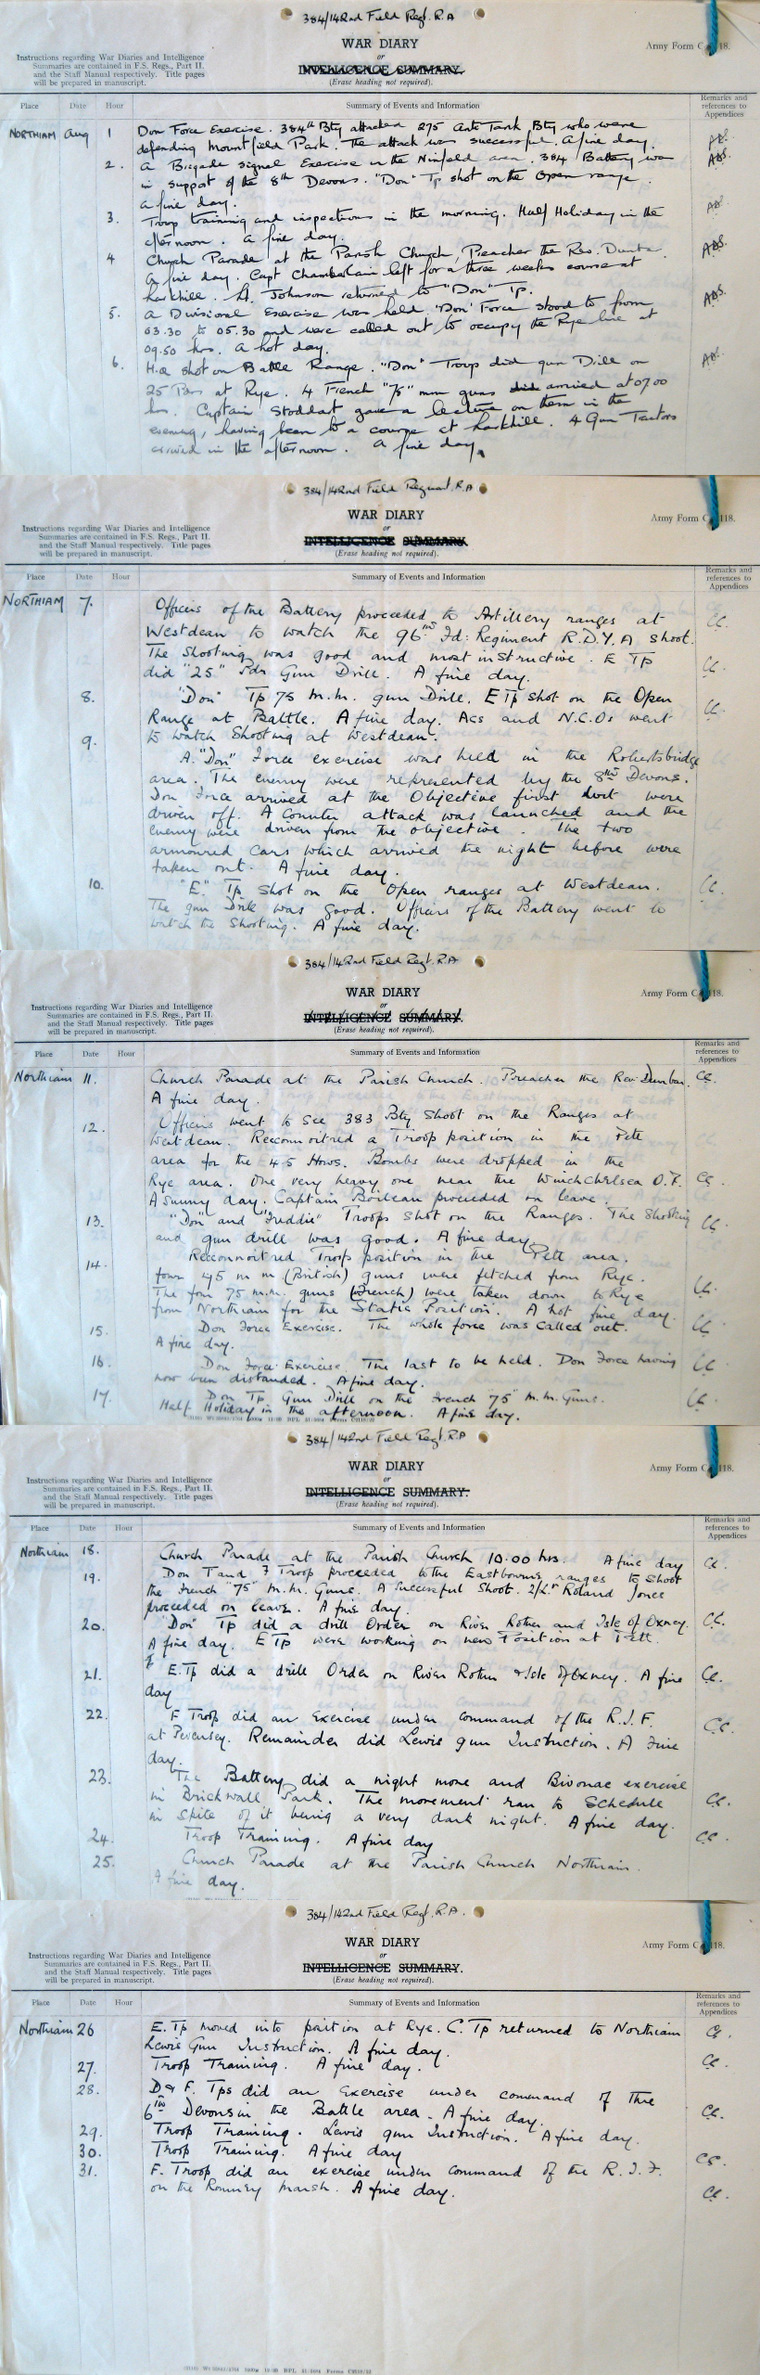 384/142nd Field Regt. R.A
WAR DIARY
or
INTELLIGENCE SUMMARY.
(Erase heading not required).
Army Form C 118.
Instructions regarding War Diaries and Intelligence
Summaries are contained in F.S. Regs., Part II.
and the Staff Manual respectively. Title pages
will be prepared in manuscript.
Place Date Hour Summary of Events and Information Remarks and references to Appendices
NORTHIAM Aug 1 Don Force Exercise. 384th Bty attacked 275 Ante Tank Bty who were
defending Mountfield Park. The attack was successful. A fine day.
2. A Brigade signal Exercise in the Ninfield area. 384 Battery was
in support of the 8th Devons. "Don" Tp shot on the Open range.
A fine day.
3. Troop training and inspections in the morning. Half Holiday in the
afternoon. A fine day.
4 Church Parade at the Parish Church, Preacher the Rev. Dunbar.
A fine day. Capt Chamberlain left for a three weeks course at
Larkhill. Lt. Johnson returned to "Don" Tp.
5. A Divisional Exercise was held. "Don" Force stood to from
03.30 to 05.30 and were called out to occupy the Rye line at
09.50 hrs. A hot day.
6. H.Q shot on Battle Range. "Don" Troop did gun Drill on
25 Prs at Rye. 4 French "75" mm guns did arrived at 07.00
hrs. Captain Stoddart gave a lecture on them in the
evening, having been to a course at Larkhill. 4 Gun Tractors
arrived in the afternoon. A fine day.
384/142nd Field Regiment. R.A
WAR DIARY
or
INTELLIGENCE SUMMARY
(Erase heading not required).
Army Form C 118.
Instructions regarding War Diaries and Intelligence
Summaries are contained in F.S. Regs., Part II.
and the Staff Manual respectively. Title pages
will be prepared in manuscript.
Place Date Hour Summary of Events and Information Remarks and references to Appendices
NORTHIAM 7. Officers of the Battery proceeded to Artillery ranges at
Westdean to watch the 96th Fd: Regiment R.D.Y.A shoot.
The Shooting was good and most instructive. E Tp
did "25" Pdr Gun Drill. A fine day.
8. "Don" Tp 75 m.m. gun Drill. E Tp shot on the Open
Range at Battle. A fine day. Acs and N.C.Os went
to watch Shooting at Westdean.
9. A "Don" Force exercise was held in the Robertsbridge
area. The enemy were represented by the 8th Devons.
Don Force arrived at the Objective first but were
driven off. A Counter attack was launched and the
enemy were driven from the objective. The two
armoured cars which arrived the night before were
taken out. A fine day.
10. "E" Tp Shot on the Open ranges at Westdean.
The gun Drill was good. Officers of the Battery went to
watch the Shooting. A fine day.
384/142nd Field Regt. R.A
WAR DIARY
or
INTELLIGENCE SUMMARY.
(Erase heading not required).
Army Form C 118.
Instructions regarding War Diaries and Intelligence
Summaries are contained in F.S. Regs., Part II.
and the Staff Manual respectively. Title pages
will be prepared in manuscript.
Place Date Hour Summary of Events and Information Remarks and references to Appendices
Northiam 11. Church Parade at the Parish Church. Preacher the Rev. Dunbar.
A fine day.
12. Officers went to see 383 Bty Shoot on the Ranges at
Westdean. Reconnoitred a Troop position in the Pett
area for the 4.5 Hows. Bombs were dropped in the
Rye area. One very heavy one near the Winchelsea O.P.
A Sunny day. Captain Boileau proceeded on leave.
13. "Don" and "Freddie" Troops Shot on the Ranges. The Shooting
and gun drill was good. A fine day.
14. Reconnoitred Troops position in the Pett area.
four 45 m m (British) guns were fetched from Rye.
The four 75 m.m. guns (French) were taken down to Rye
from Northiam for the Static Position. A hot fine day.
15. Don Force Exercise. The whole force was called out.
A fine day.
16. Don Force Exercise. The last to be held. Don Force having
now been disbanded. A fine day.
17. Don Tp Gun Drill on the French "75" m.m. Guns.
Half Holiday in the afternoon. A fine day.
384/142nd Field Regt. R.A
WAR DIARY
or
INTELLIGENCE SUMMARY.
(Erase heading not required).
Army Form C 118.
Instructions regarding War Diaries and Intelligence
Summaries are contained in F.S. Regs., Part II.
and the Staff Manual respectively. Title pages
will be prepared in manuscript.
Place Date Hour Summary of Events and Information Remarks and references to Appendices
Northiam 18. Church Parade at the Parish Church 10.00 hrs. A fine day
19. Don T and F Troop proceeded to the Eastbourne ranges to Shoot
the French "75" m.m. Guns. A Successful Shoot. 2/Lt Roland Jones
proceeded on leave. A fine day.
20. "Don" Tp did a drill Order on River Rother and Isle of Oxney.
A fine day. E Tp were working on new Position at Pett.
21. E.Tp did a drill Order on River Rother & Isle of Oxney. A fine
day
22. F Troop did an Exercise under command of the R.I.F.
at Pevensey. Remainder did Lewis gun Instruction. A fine
day.
23. The Battery did a night move and Bivouac exercise
in Brickwall Park. The movement ran to Schedule
in spite of it being a very dark night. A fine day.
24. Troop Training. A fine day
25. Church Parade at the Parish Church Northiam.
A fine day.
384/142nd Field Regt. R.A.
WAR DIARY
or
INTELLIGENCE SUMMARY.
(Erase heading not required).
Army Form C 118.
Instructions regarding War Diaries and Intelligence
Summaries are contained in F.S. Regs., Part II.
and the Staff Manual respectively. Title pages
will be prepared in manuscript.
Place Date Hour Summary of Events and Information Remarks and references to Appendices
Northiam 26 E. Tp moved into position at Rye. C. Tp returned to Northiam
Lewis Gun Instruction. A fine day.
27. Troop Training. A fine day.
28. D & F. Tps did an Exercise under command of the
6th Devons in the Battle area. A fine day.
29. Troop Training. Lewis gun Instruction. A fine day.
30. Troop Training. A fine day
31. F. Troop did an exercise under command of the R.I.F.
on the Romney Marsh. A fine day.